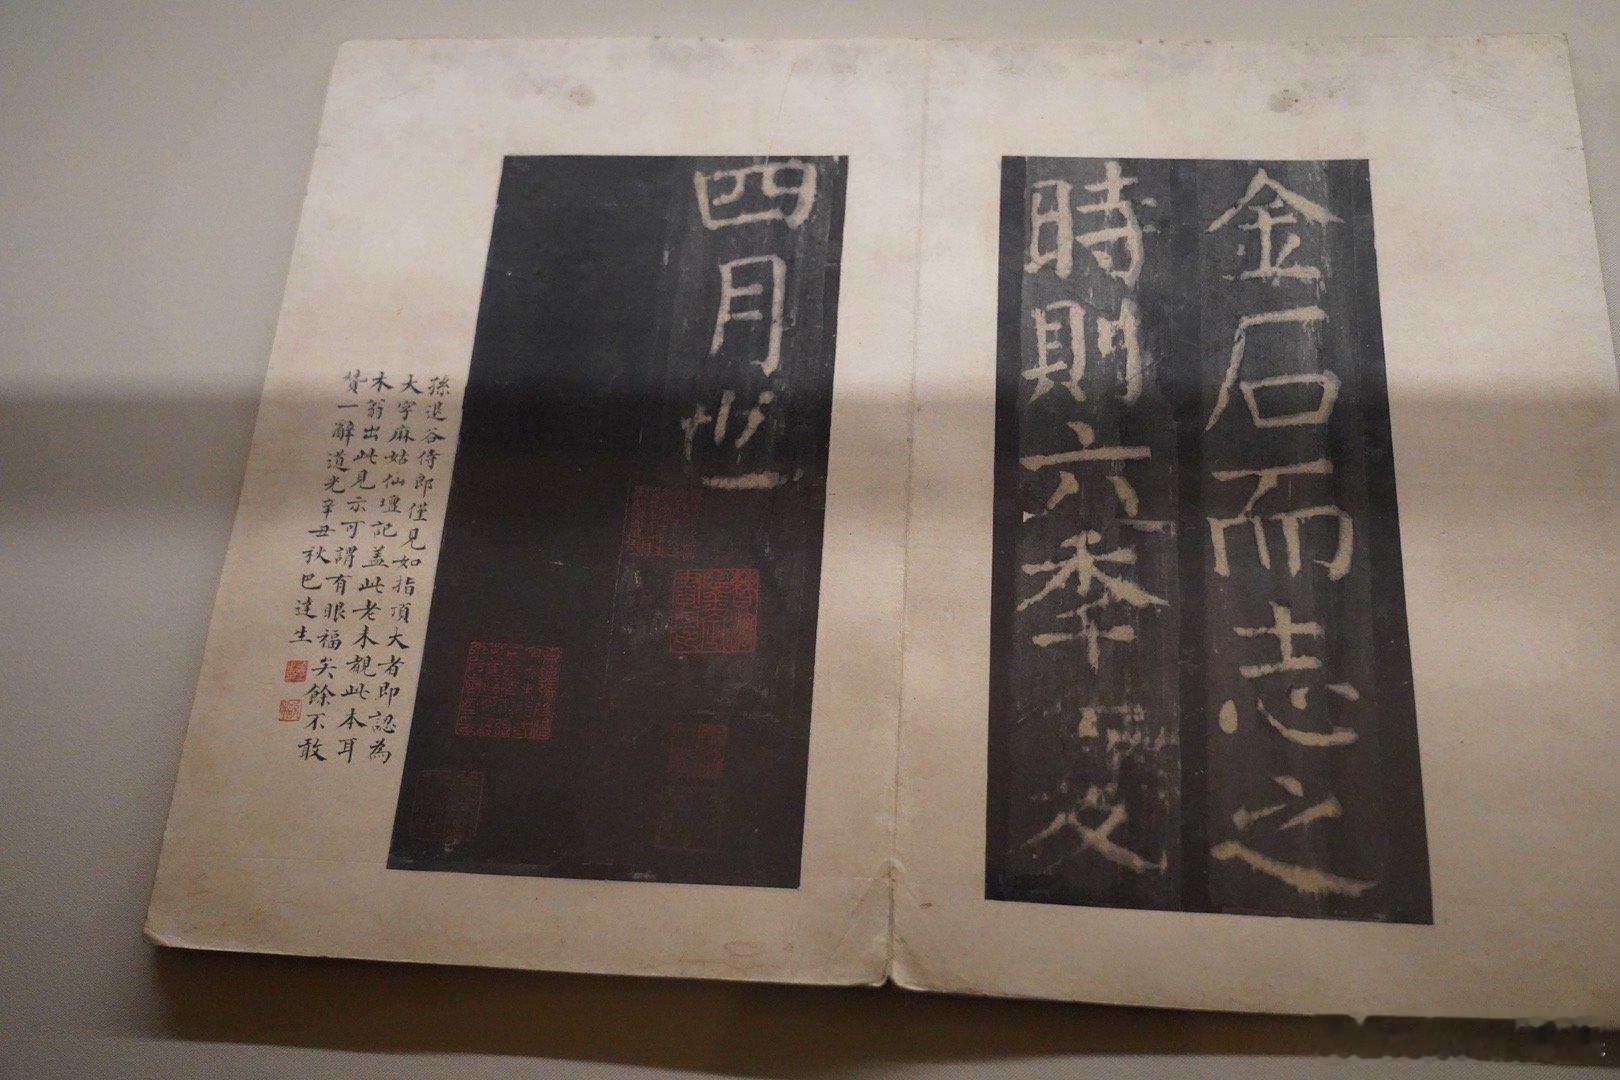 金石而志之
時則六秊夏
四月也
孫退谷侍郎僅見如指頂大者即認為
大字麻姑仙壇記蓋此老未覩此本耳
木翁出此見示可謂有眼福矣餘不敢
贊一辭道光辛丑秋巴達生